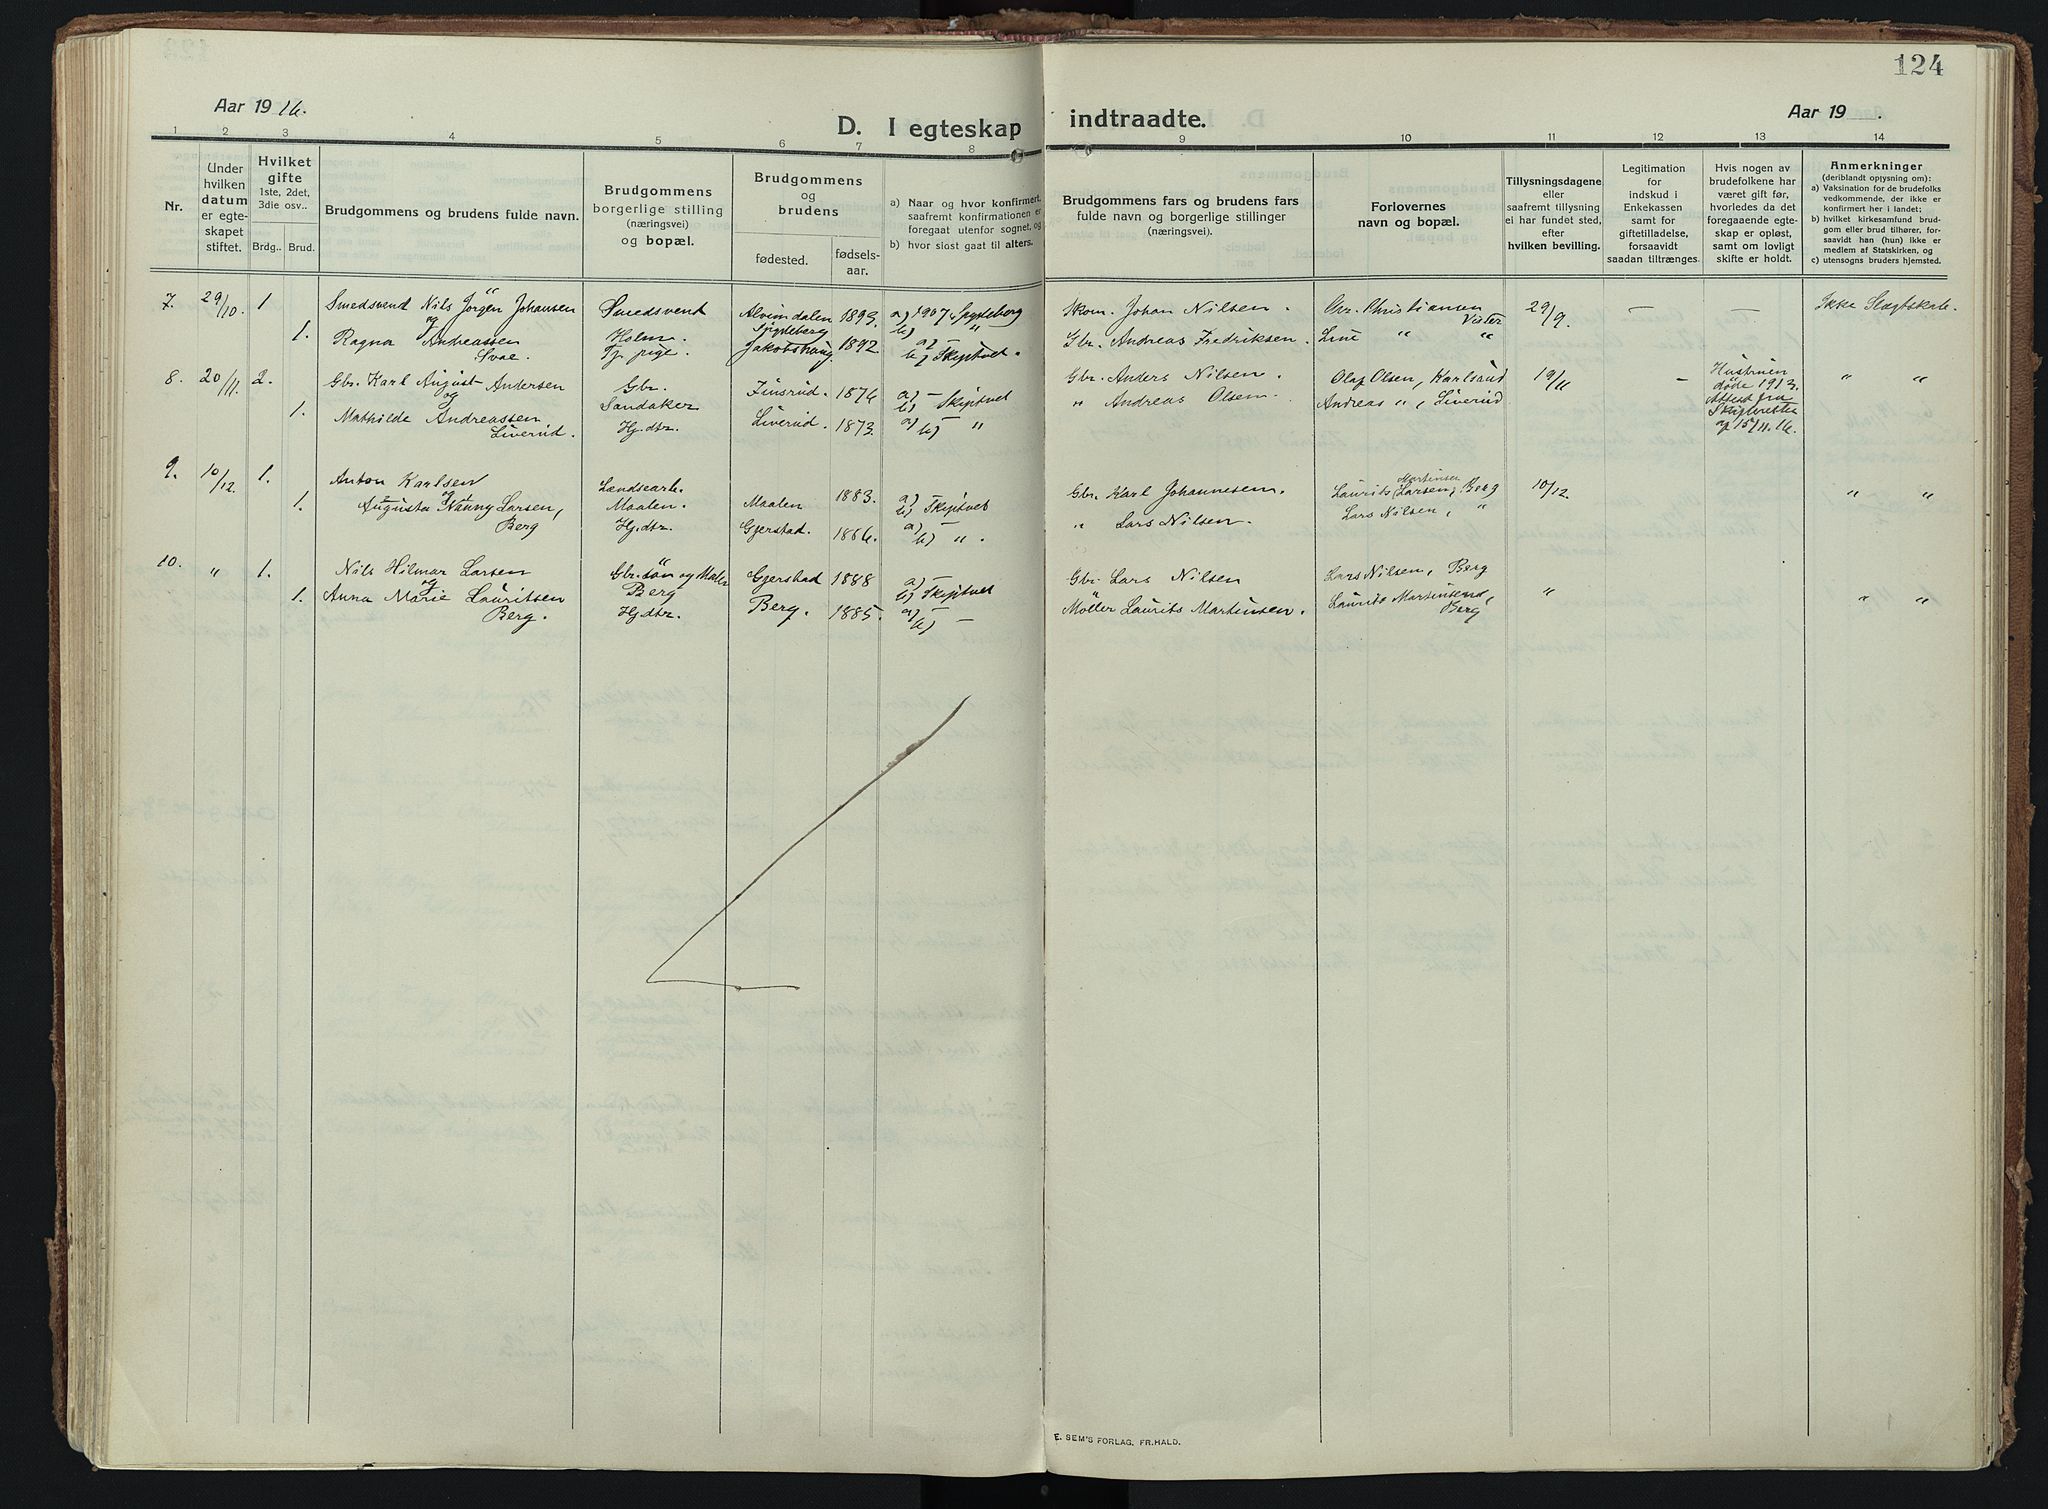 124
Aar 1916.
D. I egteskap indtraadte.
Aar 19 .
1 2 3 4 5 6 7 8 9 10 11 12 13 14
Nr.
Under hvilken datum er egte-skapet stiftet.
Hvilket gifte
1ste, 2det, 3die osv..
Brdg. Brud.
Brudgommens og brudens fulde navn.
Brudgommens borgerlige stilling (næringsvei) og bopæl.
Brudgommens og brudens
fødested.
fødsels-aar.
a) Naar og hvor konfirmert, saafremt konfirmationen er foregaat utenfor sognet, og
b) hvor sidst gaat til alters.
Brudgommens fars og brudens fars fulde navn og borgerlige stillinger (næringsvei).
Forlovernes navn og bopæl.
Tillysningsdagene eller saafremt tillysning ei har fundet sted, efter hvilken bevilling.
Legitimation for indskud i Enkekassen samt for giftetilladelse, forsaavidt saadan tiltrænges.
Hvis nogen av brudefolkene har været gift før, hvorledes da det foregaaende egte-skap er opløst, samt om lovligt skifte er holdt.
Anmerkninger
(deriblandt opjysning om):
a) Vaksination for de brudefolks vedkommende, der ikke er konfirmert her i landet;
b) hvilket kirkesamfund brud-gom eller brud tilhører, for-saavidt han (hun) ikke er medlem af Statskirken, og
c) utensogns bruders hjemsted.
7. 29/10. 1 Smedsvend Nils Jørgen Johansen Smedsvend 1893. a) 1907 Spydeberg Skom. Johan Nilsen. Chr. Christiansen 29/9. — — Ikke Slegtskab.
og Holm. Spydeberg b) " Vister
1. Ragna Andreassen Tj. pige. Jakobshaug. 1892. a) — Gbr. Andreas Fredriksen. Line " "
Svae. b) Skiptvet.
8. 20/11. 2. Gbr. Karl August Andersen Gbr. Finsrud. 1876 a) — Gbr. Anders Nilsen. Olaf Olsen, Karlsrud 19/11 — Hustruen " "
og Sandaker b) Skiptvet døde 1913.
1. Mathilde Andreassen Hj. dtr. Liverud. 1873. a) " Andreas Olsen. Andreas ", Liverud Attest fra
Liverud. b) " Skifteretten
af 15/11. 16.
9. 10/12. 1. Anton Karlsen Landsearb. Maalen 1883. a) — Gbr. Karl Johannesen. Laurits Martinsen Larsen, Berg 10/12. " "
og Maalen. b) Skiptvet
1. Augusta Nanny Larsen, Hj. dtr. Gjerstad. 1886. a) — " Lars Nilsen. Lars Nilsen, "
Berg b) ".
10. " 1. Nils Hilmar Larsen Gbr. søn og Maler Gjerstad 1888 a) — Gbr. Lars Nilsen Lars Nilsen, Berg " " "
og Berg b) Skiptvet
1. Anna Marie Lauritsen Hj. dtr. Berg. 1885. a) — Møller Laurits Martinsen. Laurits Martinsend,
Berg. b) — Berg
E. SEM'S FORLAG, FR.HALD.